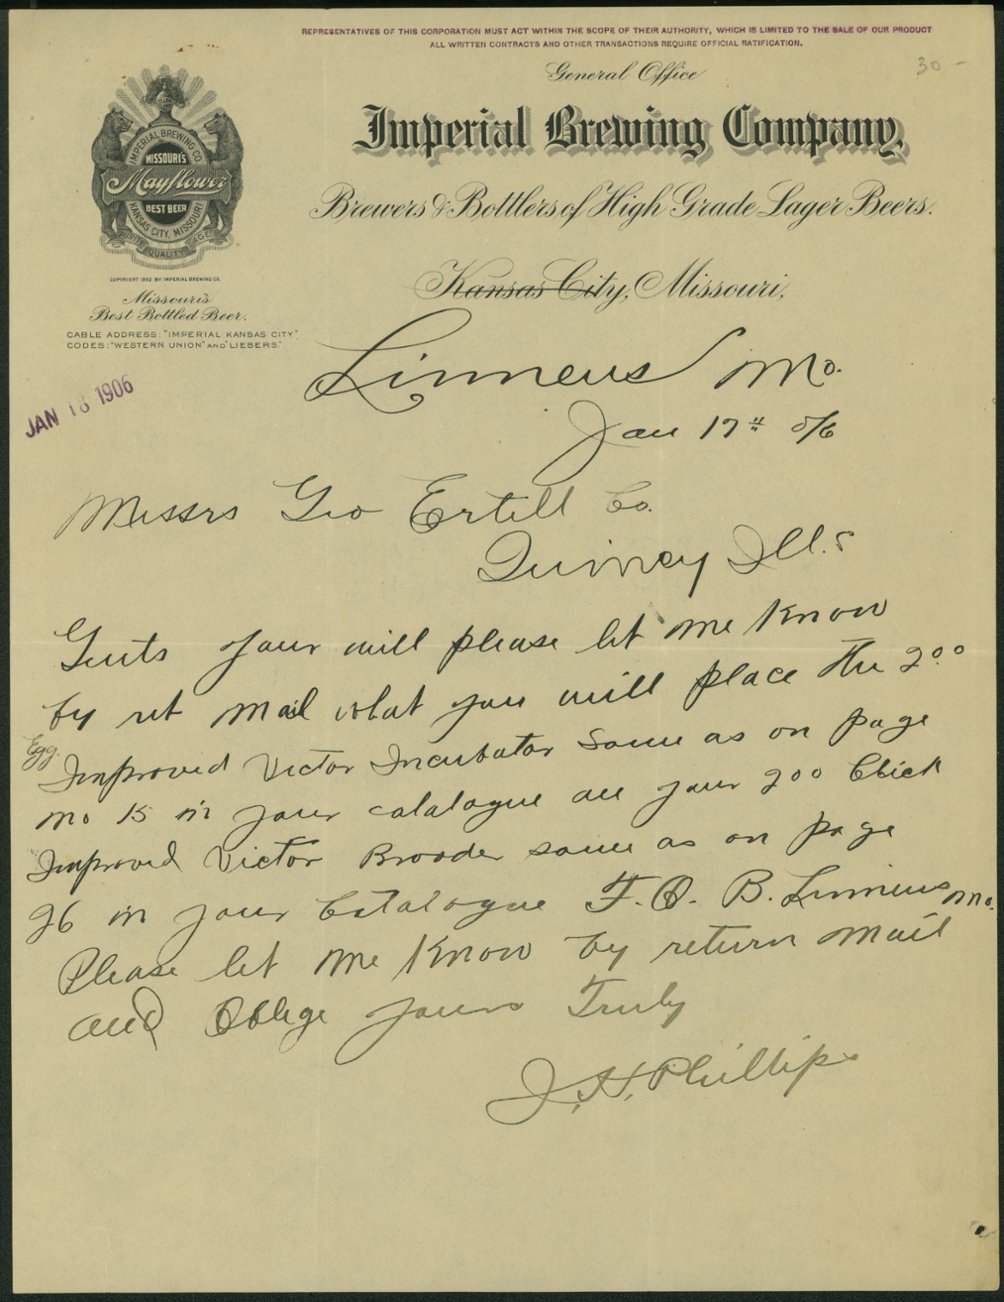 REPRESENTATIVES OF THIS CORPORATION MUST ACT WITHIN THE SCOPE OF THEIR AUTHORITY, WHICH IS LIMITED TO THE SALE OF OUR PRODUCT
ALL WRITTEN CONTRACTS AND OTHER TRANSACTIONS REQUIRE OFFICIAL RATIFICATION.
30 -
General Office
Imperial Brewing Company,
Brewers & Bottlers of High Grade Lager Beers.
Kansas City, Missouri,
IMPERIAL BREWING CO.
MISSOURI'S
Mayflower
BEST BEER
KANSAS CITY, MISSOURI
PURITY QUALITY AGE
COPYRIGHT 1902 BY IMPERIAL BREWING CO.
Missouri's
Best Bottled Beer.
CABLE ADDRESS: "IMPERIAL KANSAS CITY"
CODES: "WESTERN UNION" AND "LIEBERS."
JAN 18 1906
Linneus Mo.
Jan 17th 0/6
Messrs Geo Ertell Co.
Quincy Ills
Gents your will please let me Know
by ret Mail what you will place the 200
Egg
Improved Victor Incubator Same as on page
no 15 in your catalogue and your 200 Chick
Improved Victor Brooder same as on page
26 in your Catalogue F.O.B. Linneus Mo.
Please let me Know by return mail
and Oblege yours Truly
J.H. Phillips